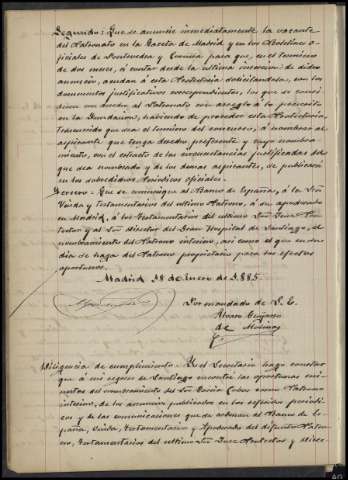 Segundo: Que se anuncie inmediatamente la vacante
del Patronato en la Gaceta de Madrid y en los Boletines o-
ficiales de Pontevedra y Coruña para que, en el término
de dos meses, á contar desde la ultima insercion de dicho
anuncio, acudan á esta Protectoria solicitandola, con los
documentos justificativos correspondientes, los que se consi-
deren con derecho al Patronato con arreglo á lo prescrito
en la fundacion, habiendo de proceder esta Protectoria,
trascurrido que sea el termino del concurso, á nombrar al
aspirante que tenga derecho preferente y cuyo nombra-
miento, con el extracto de las circunstancias justificadas del
que sea nombrado y de los demas aspirantes, se publicará
en los susodichos Periodicos oficiales.
Tercero: Que se comunique al Banco de España, á la Sra
Viuda y testamentarios del ultimo Patrono, á su apoderado
en Madrid, á los testamentarios del ultimo Sr Juez Pro-
tector y al Sr Director del Gran Hospital de Santiago, el
nombramiento del Patrono interino, asi como el que en su
dia se haga del Patrono propietario para los efectos
oportunos.
Madrid 18 de Enero de 1885
Por mandado de S. E.
Alvaro
de
Diligencia de cumplimiento. Yo el Secretario hago constar
que á mi regreso de Santiago encontré las oportunas
minutas del nombramiento del Sr Garcia Cobos como Patrono
interino, de los anuncios publicados en los referidos periódi-
cos y de las comunicaciones que se ordenan al Banco de Es-
paña, Viuda, testamentarios y Apoderado del difunto Patro-
no, testamentarios del ultimo Sr Juez Protector y Direc-